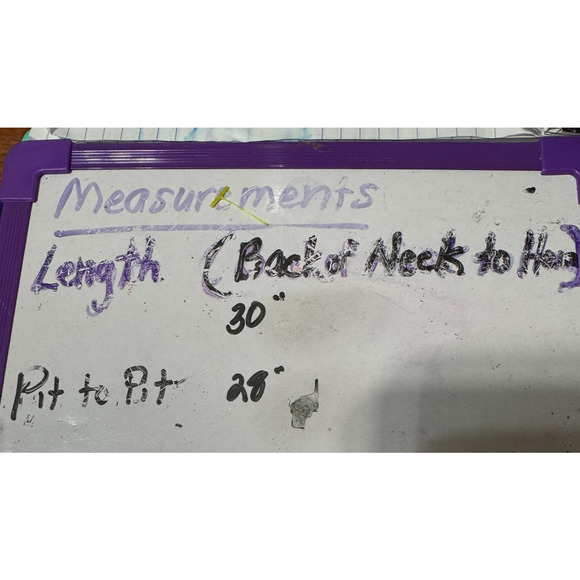 Measurements
Length (Back of Neck to Hem)
30"
Pit to Pit 28"